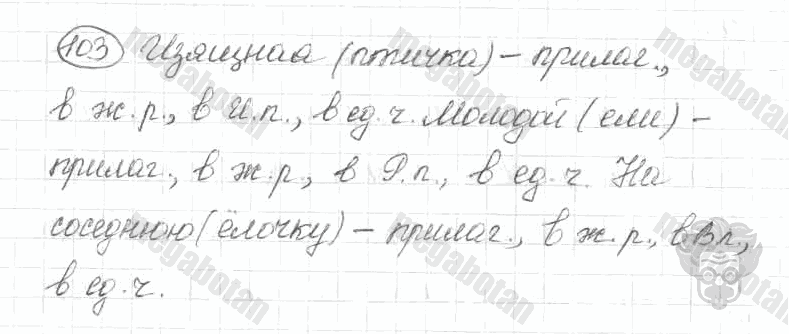 103 Изящная (птичка) – прилаг.,
в ж.р., в И.п., в ед.ч. Молодой (ели) –
прилаг., в ж.р., в Р.п., в ед.ч. На
соседнюю (ёлочку) – прилаг., в ж.р., в В.п.,
в ед.ч.
megabotan
megabotan
megabotan
megabotan
megabotan
megabotan
megabotan